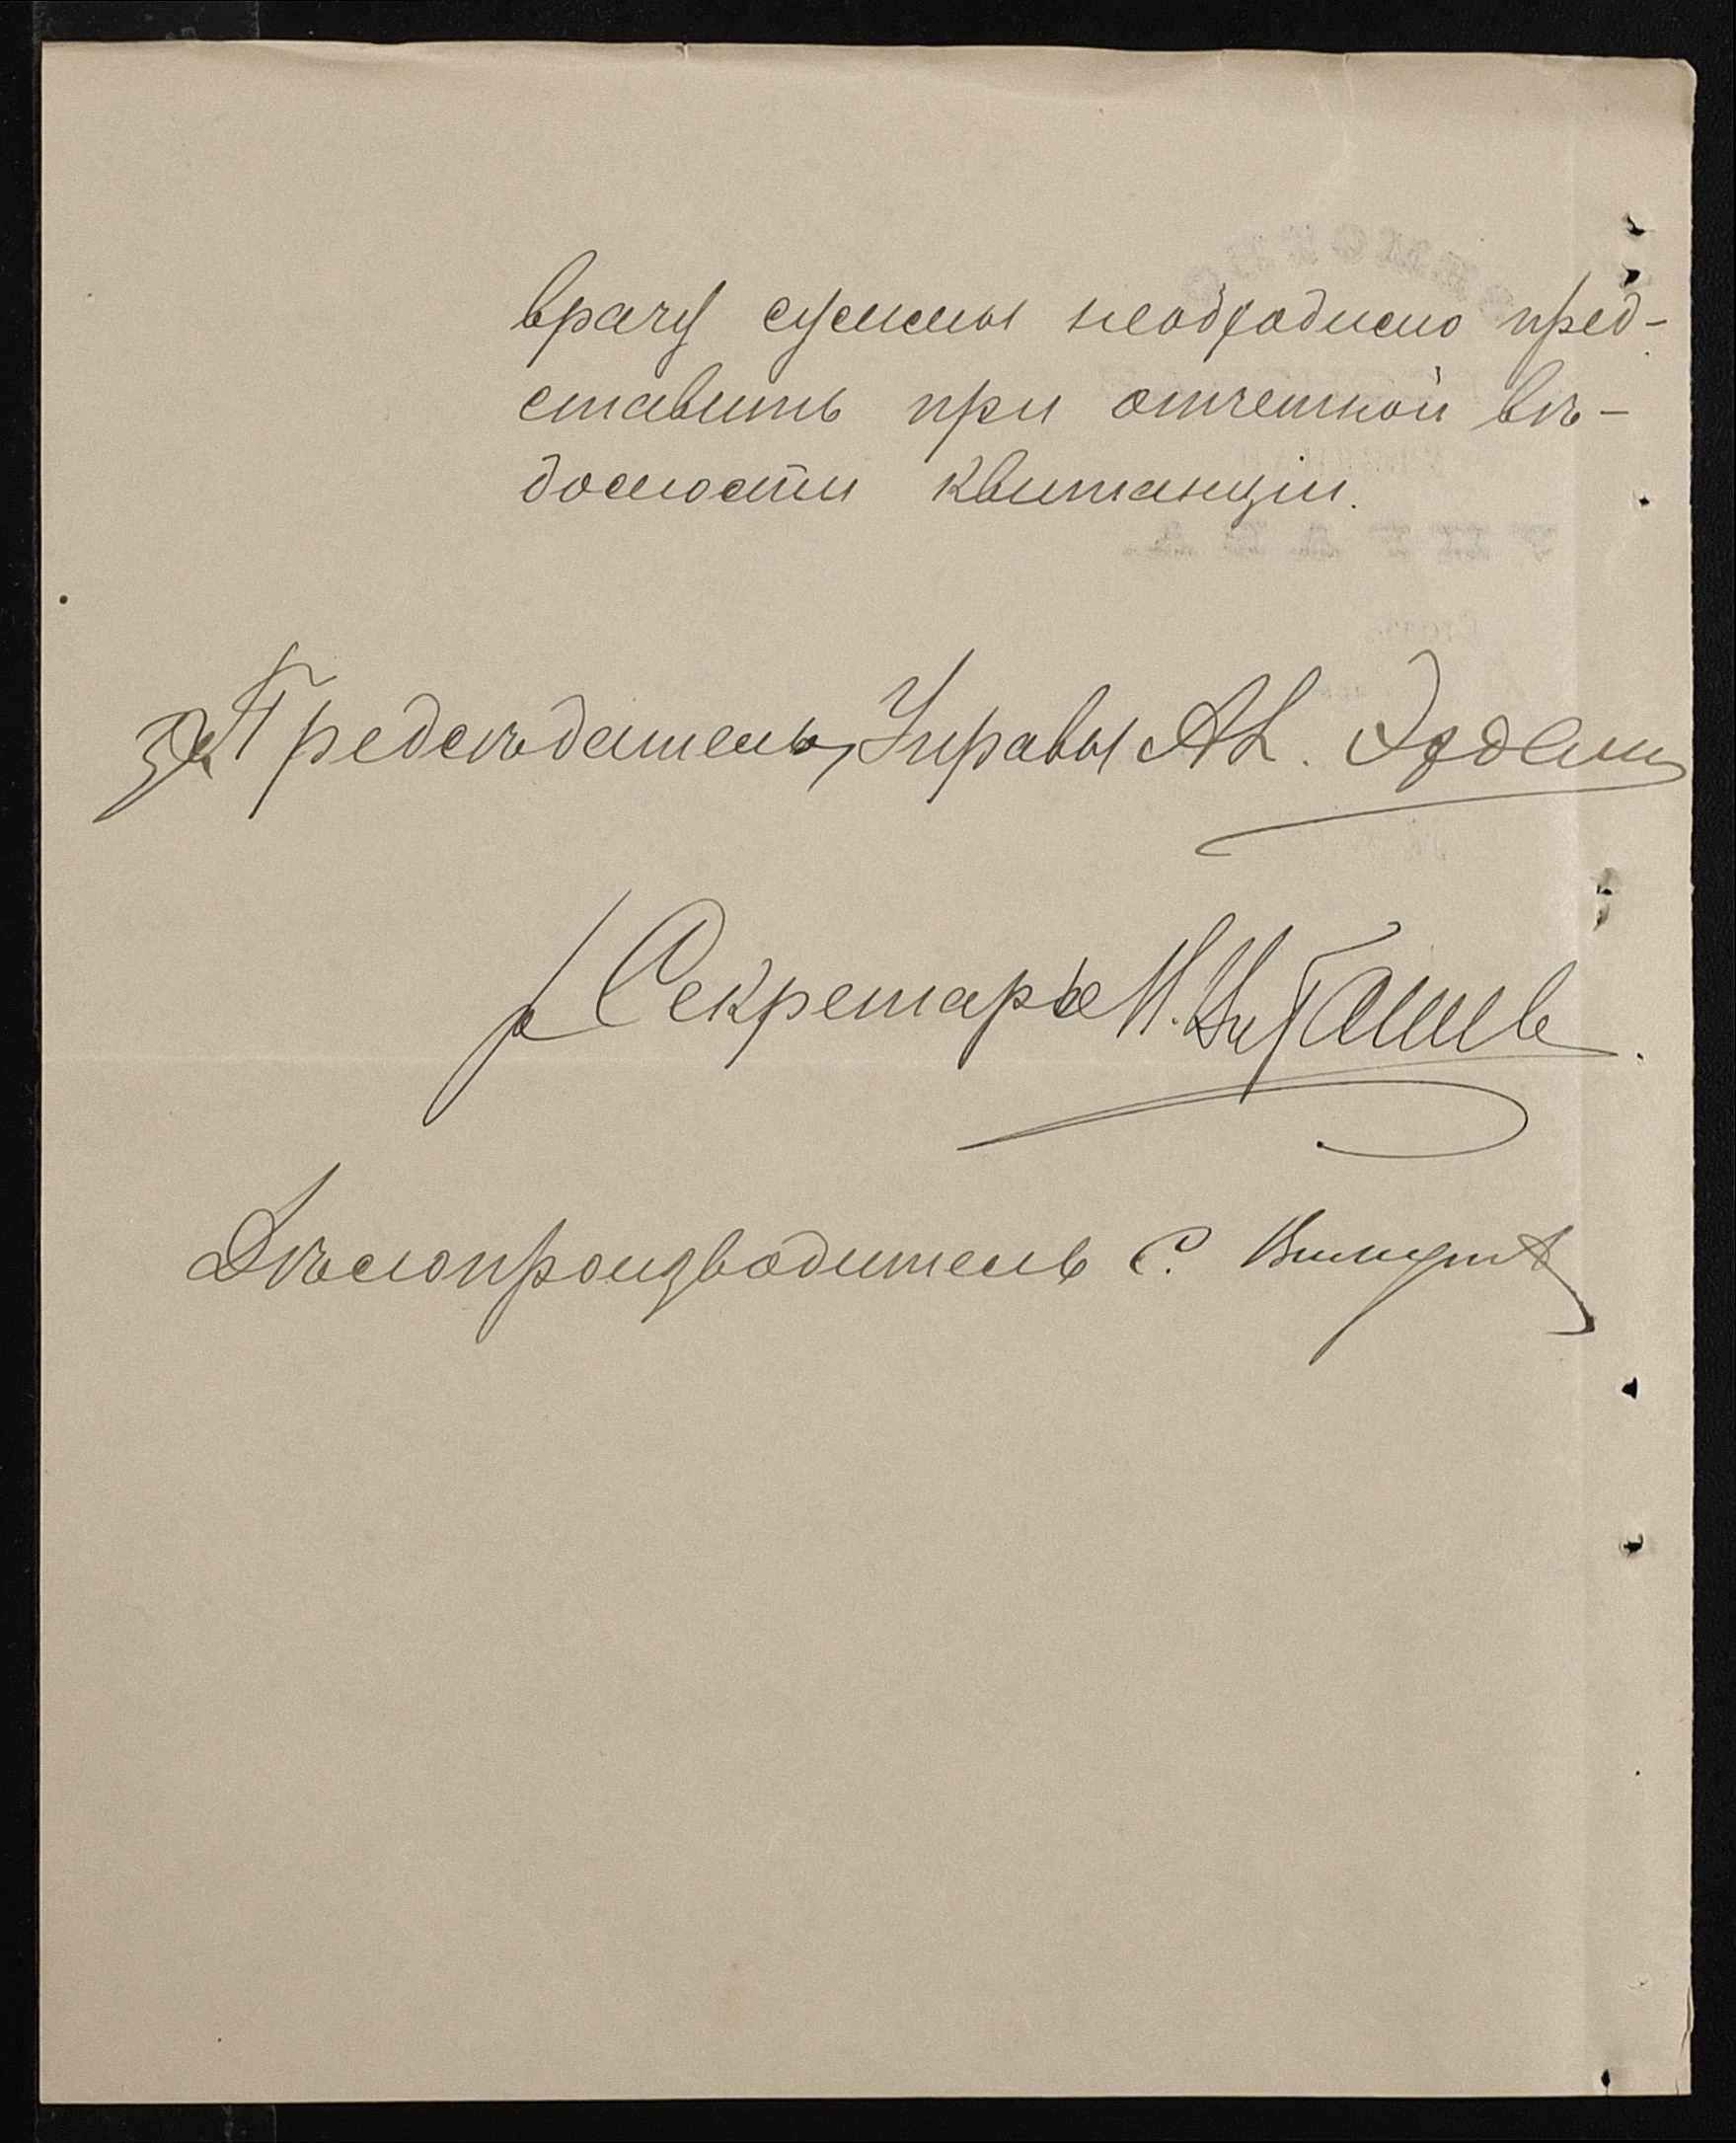 врачу суммы необходимо пред-
ставить при отчетной вѣ-
домости квитанціи.
За Предсѣдатель, Управы
Секретарь
Дѣлопроизводитель С.